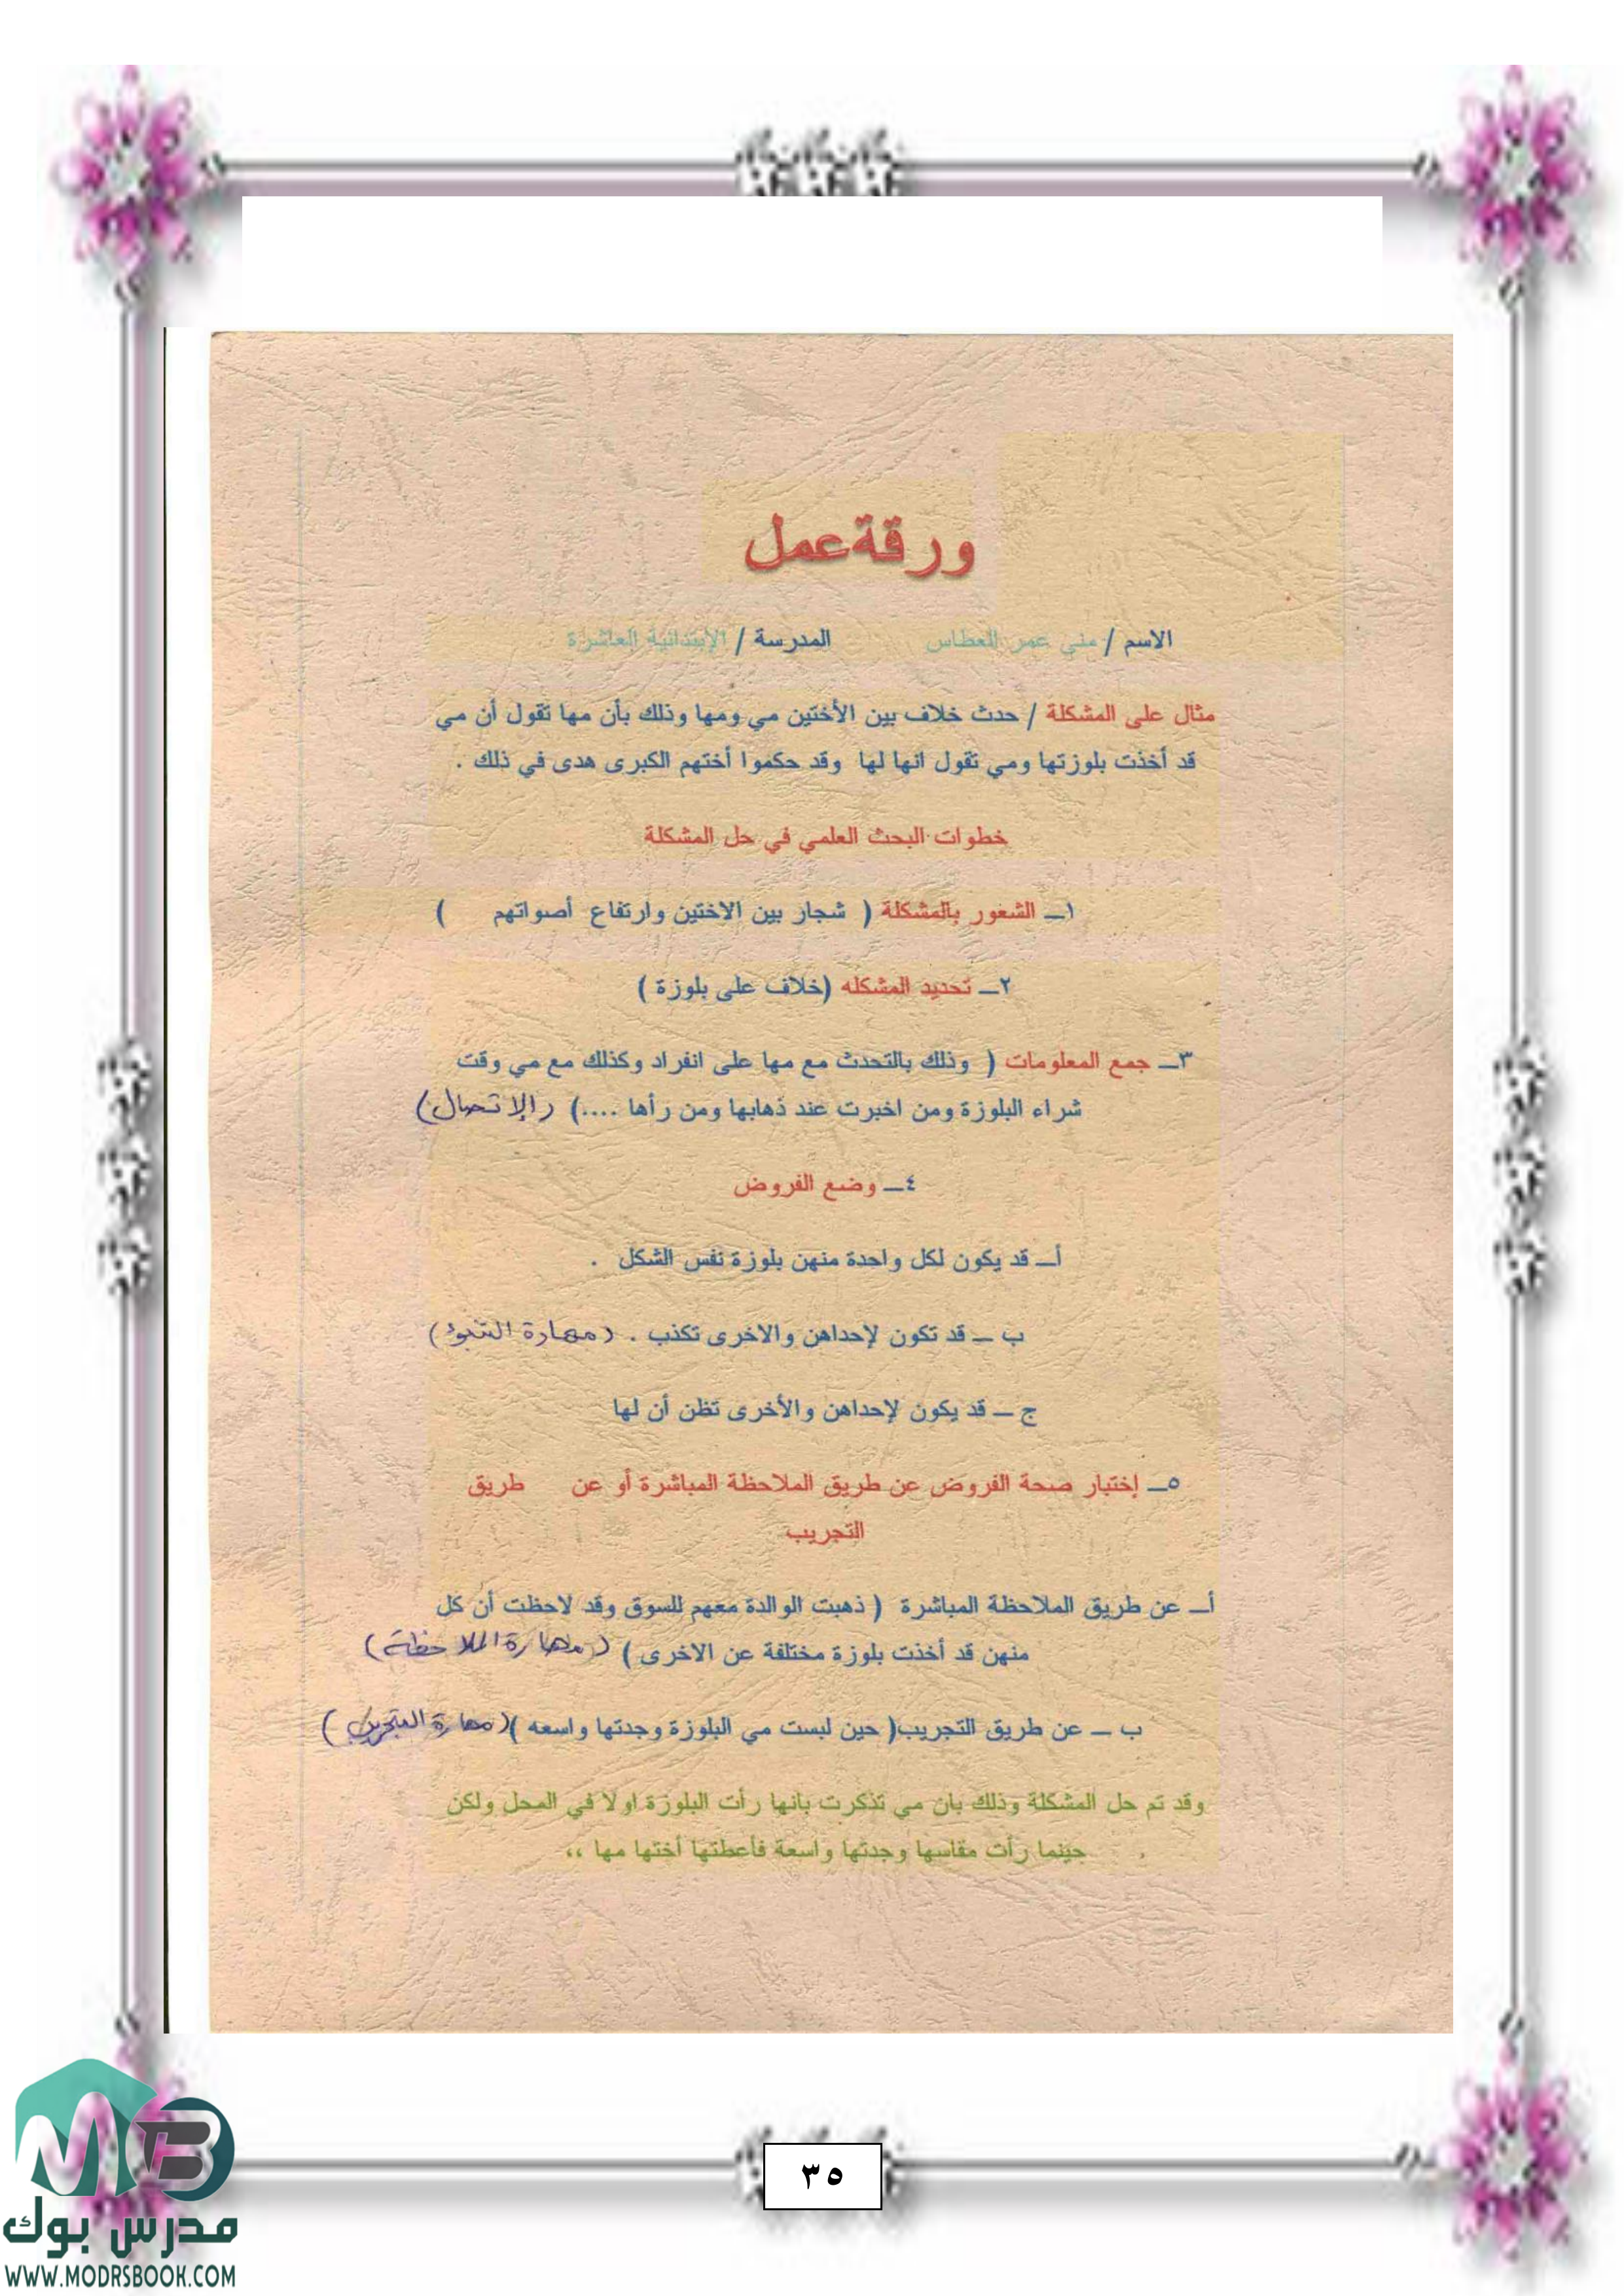 ورقة عمل
الاسم / منى عمر العطاس المدرسة / الإبتدائية العاشرة
مثال على المشكلة / حدث خلاف بين الأختين مي ومها وذلك بأن مها تقول أن مي
قد أخذت بلوزتها ومي تقول انها لها وقد حكموا أختهم الكبرى هدى في ذلك .
خطوات البحث العلمي في حل المشكلة
١ــ الشعور بالمشكلة ( شجار بين الاختين وارتفاع أصواتهم )
٢ــ تحديد المشكله (خلاف على بلوزة )
٣ــ جمع المعلومات ( وذلك بالتحدث مع مها على انفراد وكذلك مع مي وقت
شراء البلوزة ومن اخبرت عند ذهابها ومن رأها ....) (الإتصال)
٤ــ وضع الفروض
أــ قد يكون لكل واحدة منهن بلوزة نفس الشكل .
ب ــ قد تكون لإحداهن والاخرى تكذب . (مهارة التنبؤ)
ج ــ قد يكون لإحداهن والأخرى تظن أن لها
٥ــ إختبار صحة الفروض عن طريق الملاحظة المباشرة أو عن طريق
التجريب
أــ عن طريق الملاحظة المباشرة ( ذهبت الوالدة معهم للسوق وقد لاحظت أن كل
منهن قد أخذت بلوزة مختلفة عن الاخرى ) (مهارة الملاحظة)
ب ــ عن طريق التجريب( حين لبست مي البلوزة وجدتها واسعه )(مهارة التجريب)
وقد تم حل المشكلة وذلك بان مي تذكرت بانها رأت البلوزة اولا في المحل ولكن
حينما رأت مقاسها وجدتها واسعة فأعطتها أختها مها ،،
٣٥
مدرس بوك
WWW.MODRSBOOK.COM